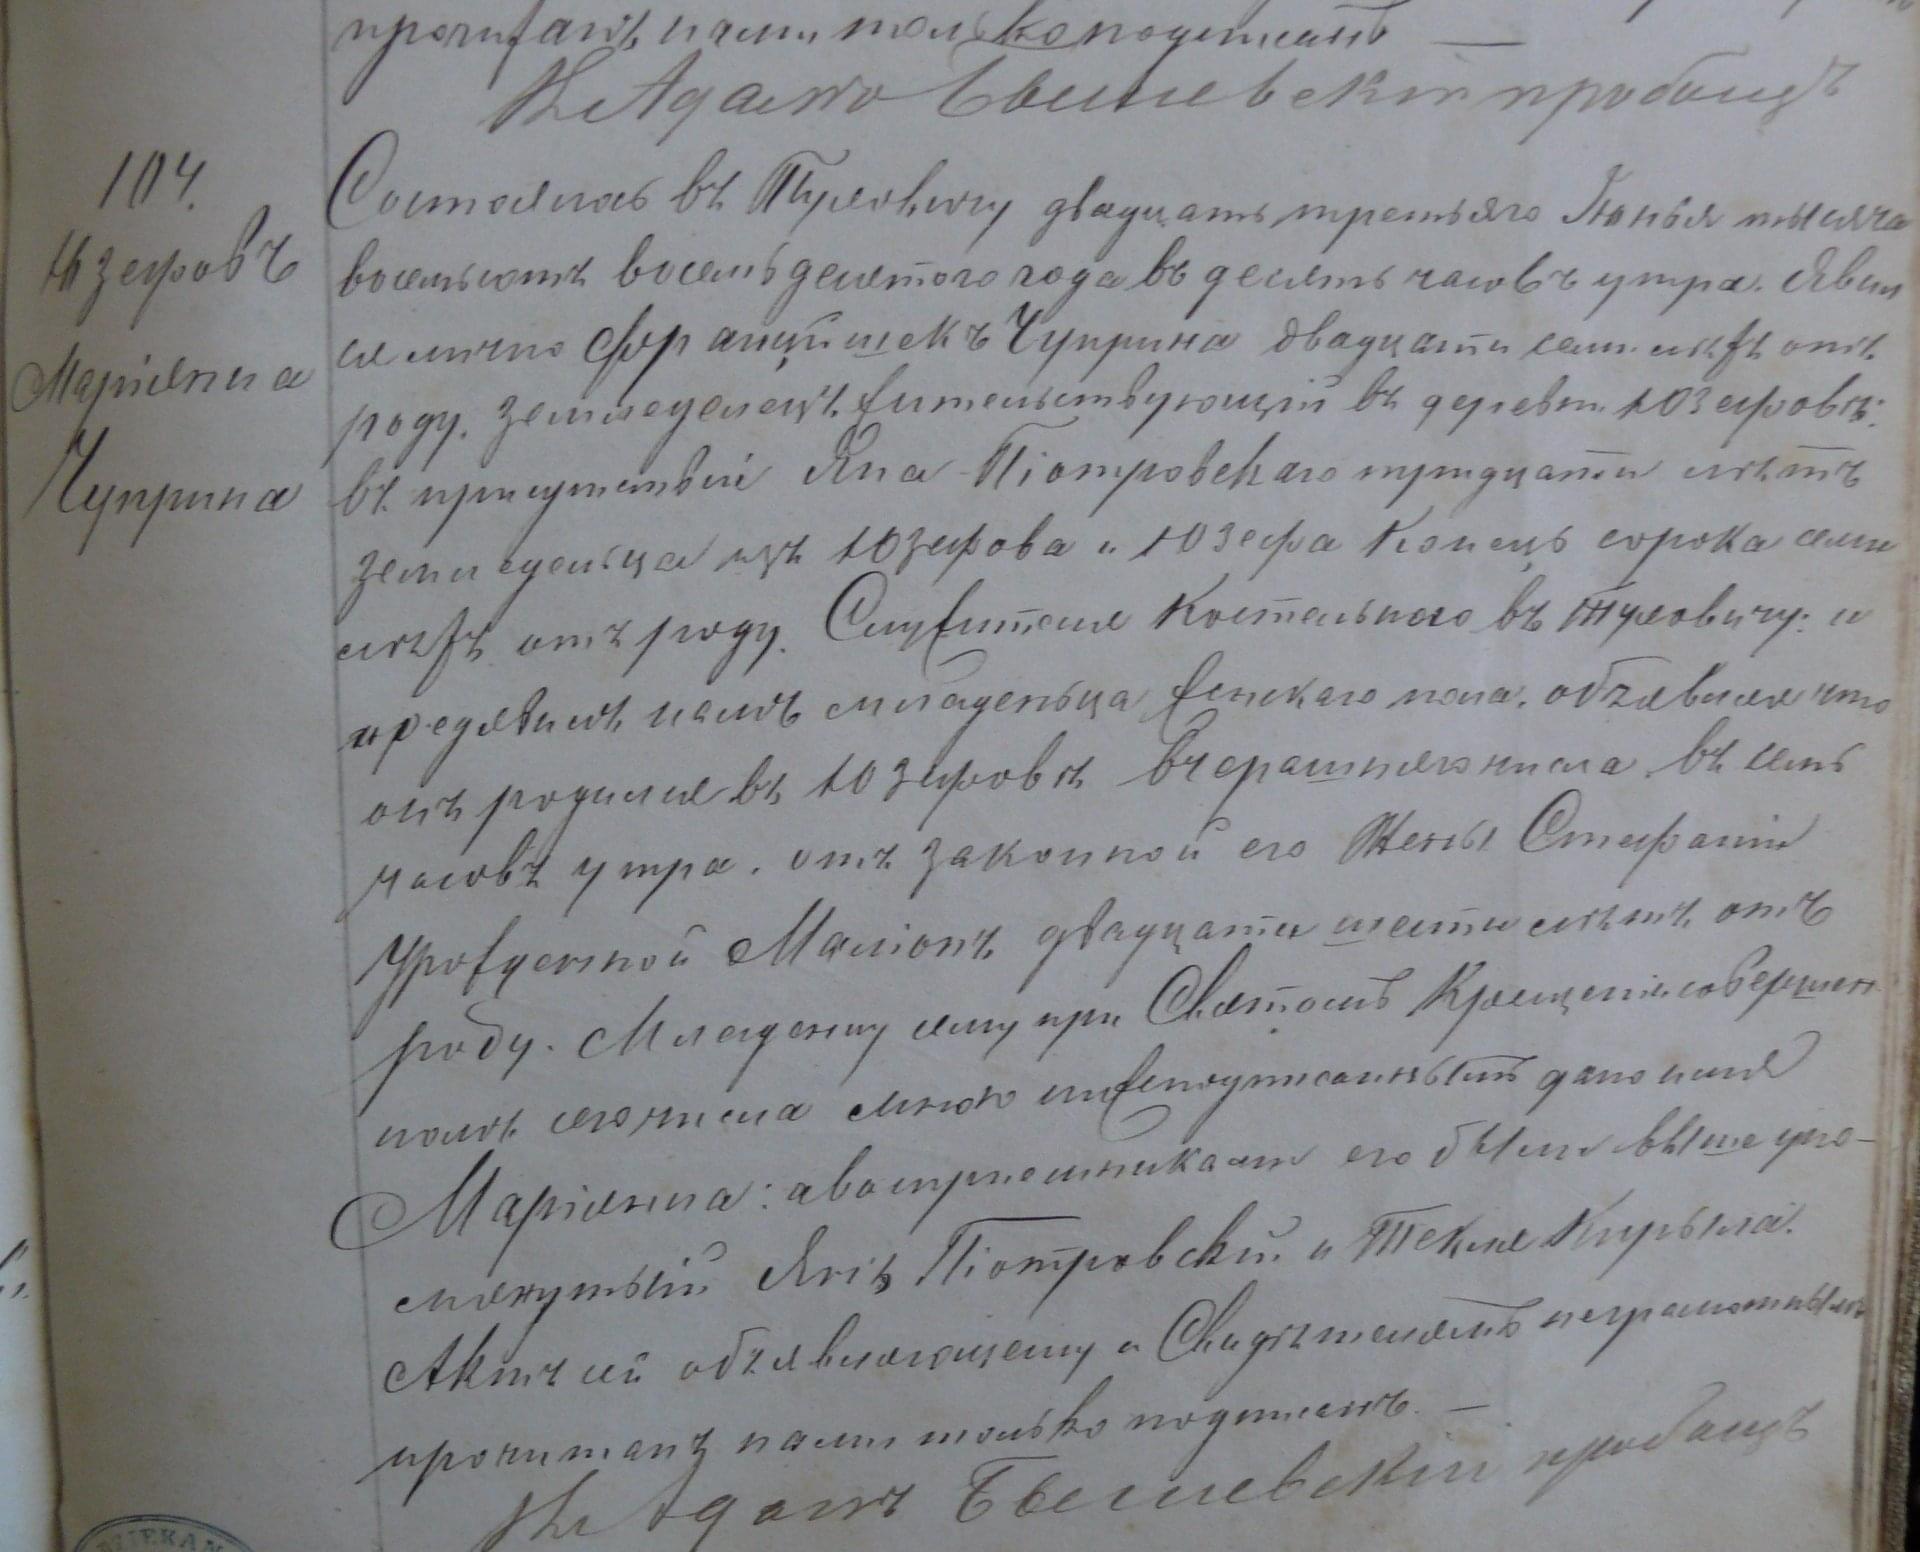 прочитанъ нами только подписанъ —
Кс Адамъ пробощъ
104.
Юзефовъ
Маріянна
Чуприна
Состоялось въ Туловичу двадцать третьяго Іюнья тысяча
восемьсотъ восемьдесятого года въ десять часовъ утра. Явил
ся лично Францишекъ Чуприна двадцати семи лѣтъ отъ
роду. земледелецъ жительствующій въ деревни Юзефовѣ:
въ присутствіи Яна Піотровскаго тридцати лѣтъ
земледельца изъ Юзефова и Юзефа Конецъ сорока семи
лѣтъ отъ роду. Служителя Костельного въ Туловичу: и
предявилъ намъ младеньца женскаго пола. объявляя что
онъ родился въ Юзефовѣ вчерашняго числа въ семь
часовъ утра. отъ законной его Жены Стефаніи
Урожденной Маліонъ двадцати шести лѣтъ отъ
роду. Младенцу сему при Святомъ Крещеніи совершен
номъ сего числа мною нижеподписаннымъ дано имя
Маріянна: а воспріемниками его были выше упо-
мянутый Янъ Піотровскій и Текля Кирыла.
Актъ сей объявляющему и Свидѣтелямъ неграмотнымъ
прочитанъ нами только подписанъ. —
Кс Адамъ пробощъ
DZIEKAN